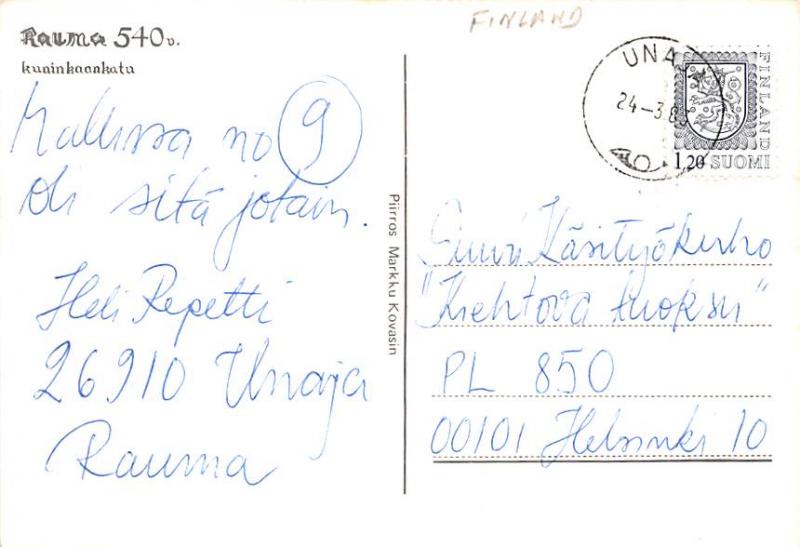 FINLAND
Rauma 540v.
kuninkaankatu
Mallissa no 9
oli sitä jotain.
Heli Repetti
26910 Unaja
Rauma
Piirros Markku Kovasin
UNAJA
24-3.8
FINLAND
1,20 SUOMI
Suuri Käsityökerho
"Kiehtova tuoksu"
PL 850
00101 Helsinki 10